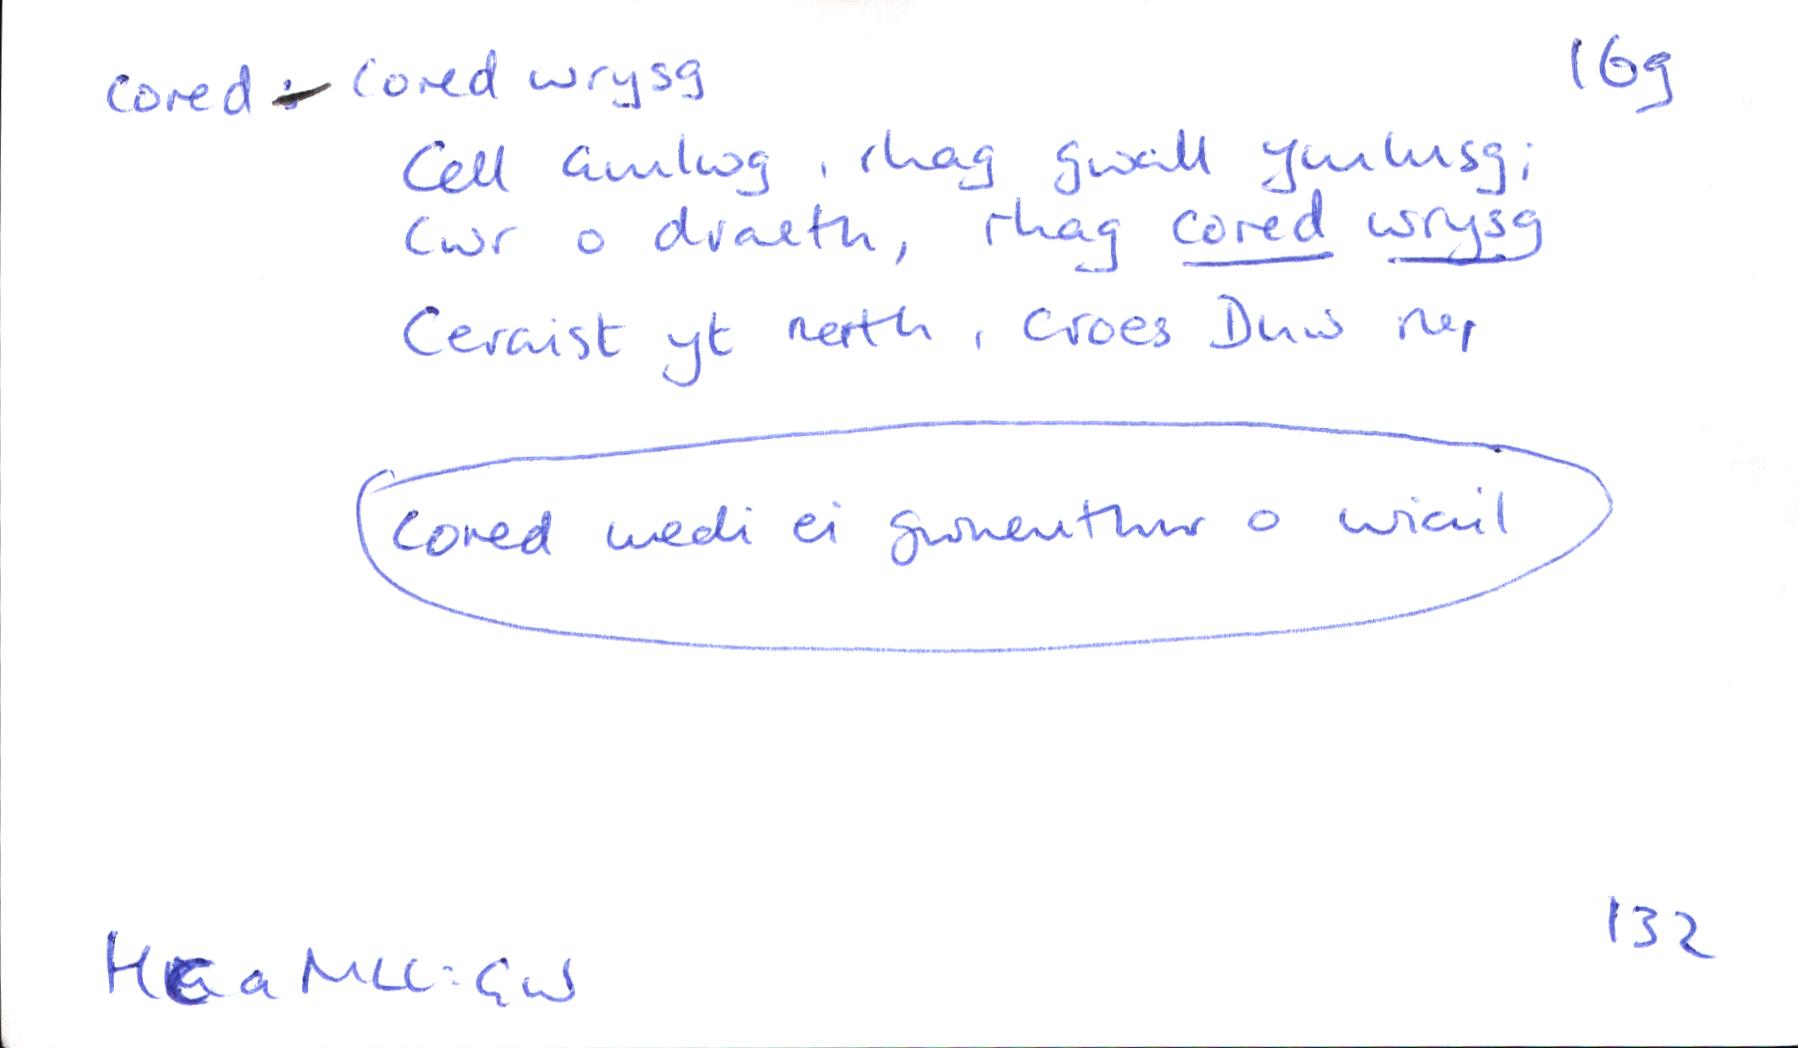 cored :- Cored wrysg 16g
Cell amlwg, rhag gwall ymlusg;
Cwr o draeth, rhag cored wrysg
Ceraist yt nerth, croes Duw ner
Cored wedi ei gwneuthur o wiail
132
HCLl a MLl: Gw